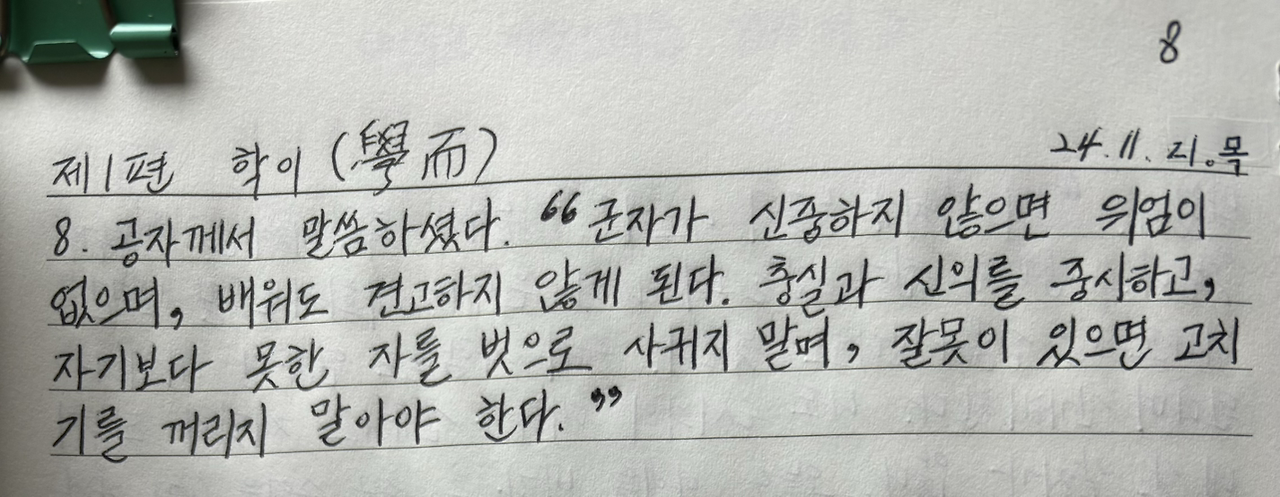 8
제1편 학이(學而) 24.11.21.목
8. 공자께서 말씀하셨다. "군자가 신중하지 않으면 위엄이
없으며, 배워도 견고하지 않게 된다. 충실과 신의를 중시하고,
자기보다 못한 자를 벗으로 사귀지 말며, 잘못이 있으면 고치
기를 꺼리지 말아야 한다."